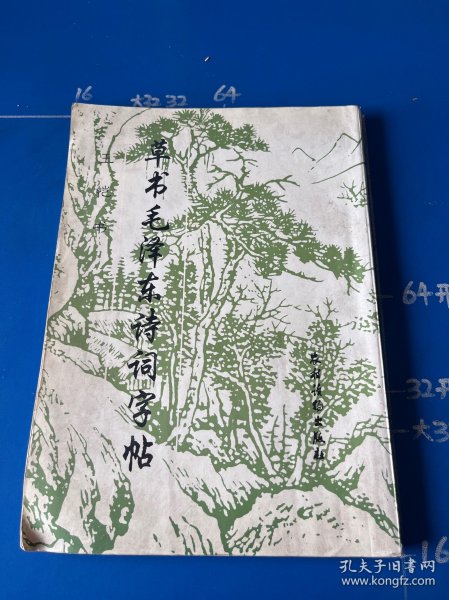 16 大32 32 64
王
书
草书毛泽东诗词字帖
出版社
64开
32开
大3
16
孔夫子旧书网
www.kongfz.com